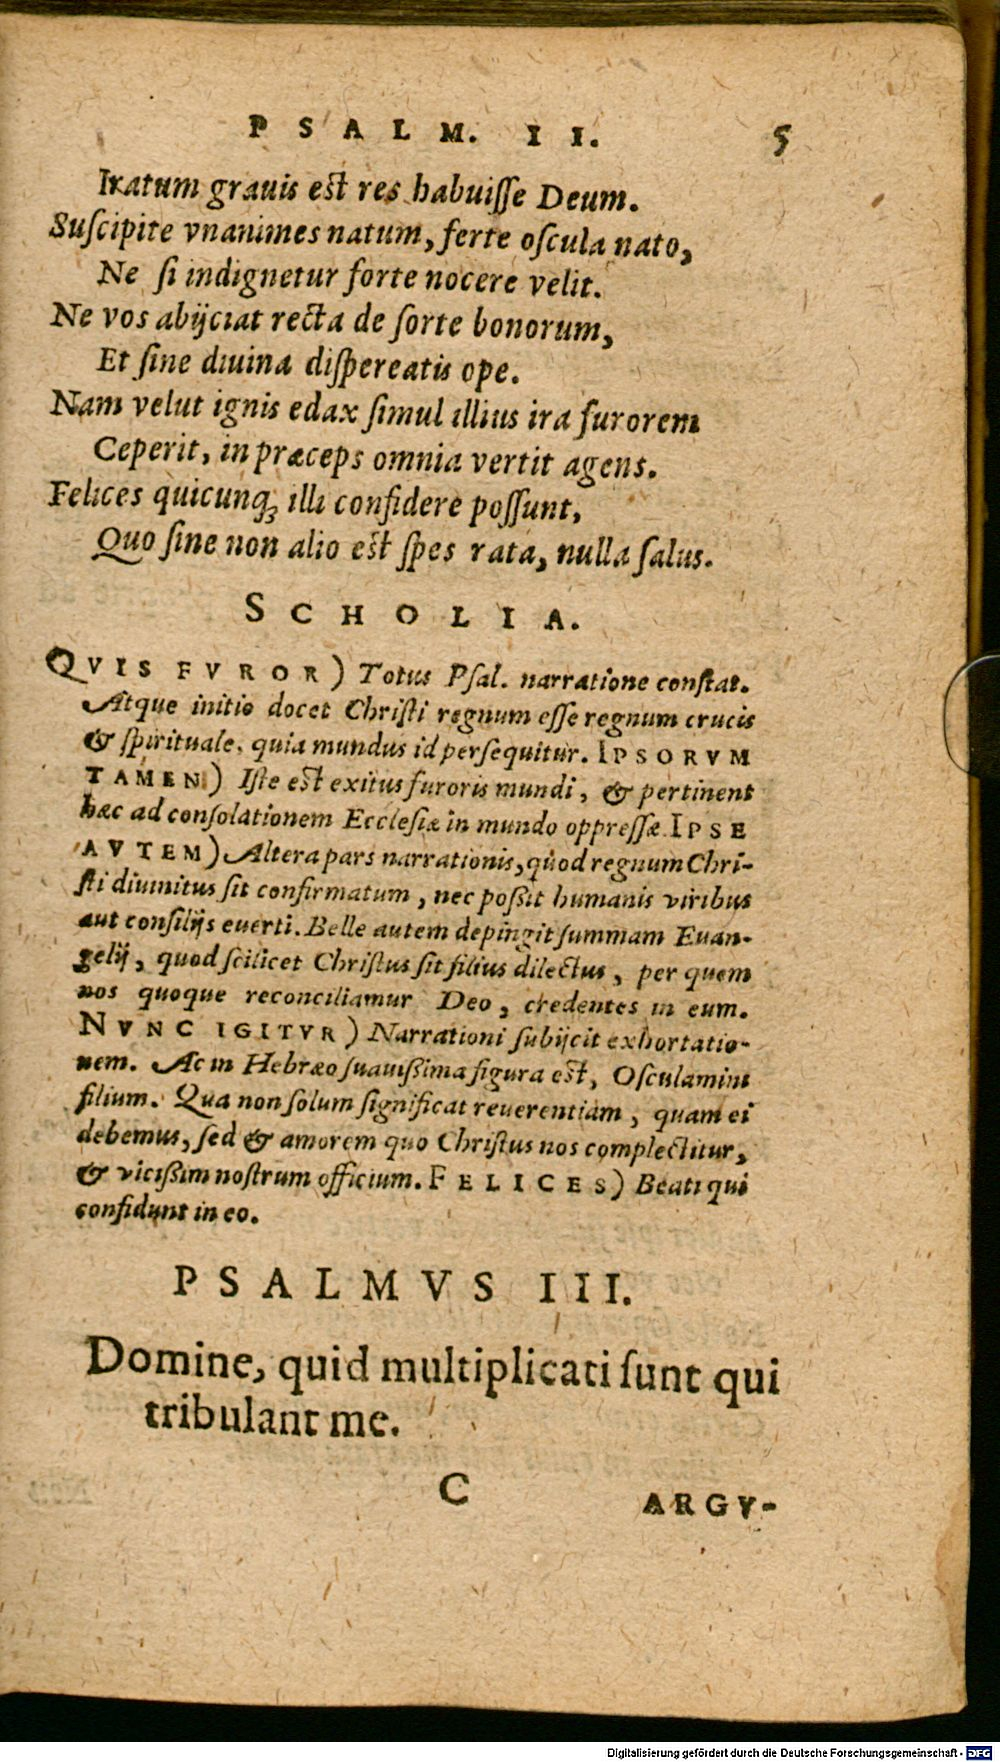 PSALM. II. 5
Iratum grauis est res habuiſſe Deum.
Suſcipite vnanimes natum, ferte oſcula nato,
Ne ſi indignetur forte nocere velit.
Ne vos abijciat recta de ſorte bonorum,
Et ſine diuina diſpereatis ope.
Nam velut ignis edax ſimul illius ira furorem
Ceperit, in præceps omnia vertit agens.
Felices quicunqꝫ illi confidere poſſunt,
Quo ſine non alio est ſpes rata, nulla ſalus.
SCHOLIA.
QVIS FVROR) Totus Pſal. narratione conſtat.
Atque initio docet Chriſti regnum eſſe regnum crucis
& ſpirituale, quia mundus id perſequitur. IPSORVM
TAMEN) Iſte est exitus furoris mundi, & pertinent
hæc ad conſolationem Eccleſiæ in mundo oppreſſæ IPSE
AVTEM) Altera pars narrationis, quòd regnum Chri-
ſti diuinitus ſit confirmatum, nec poſsit humanis viribus
aut conſilijs euerti. Belle autem depingit ſummam Euan-
gelij, quod ſcilicet Chriſtus ſit filius dilectus, per quem
nos quoque reconciliamur Deo, credentes in eum.
NVNC IGITVR) Narrationi ſubijcit exhortatio-
nem. Ac in Hebræo ſuauiſsima figura est, Oſculamini
filium. Qua non ſolum ſignificat reuerentiam, quam ei
debemus, ſed & amorem quo Chriſtus nos complectitur,
& viciſsim noſtrum officium. FELICES) Beati qui
confidunt in eo.
PSALMVS III.
Domine, quid multiplicati ſunt qui
tribulant me.
C ARGV-
Digitalisierung gefördert durch die Deutsche Forschungsgemeinschaft - DFG